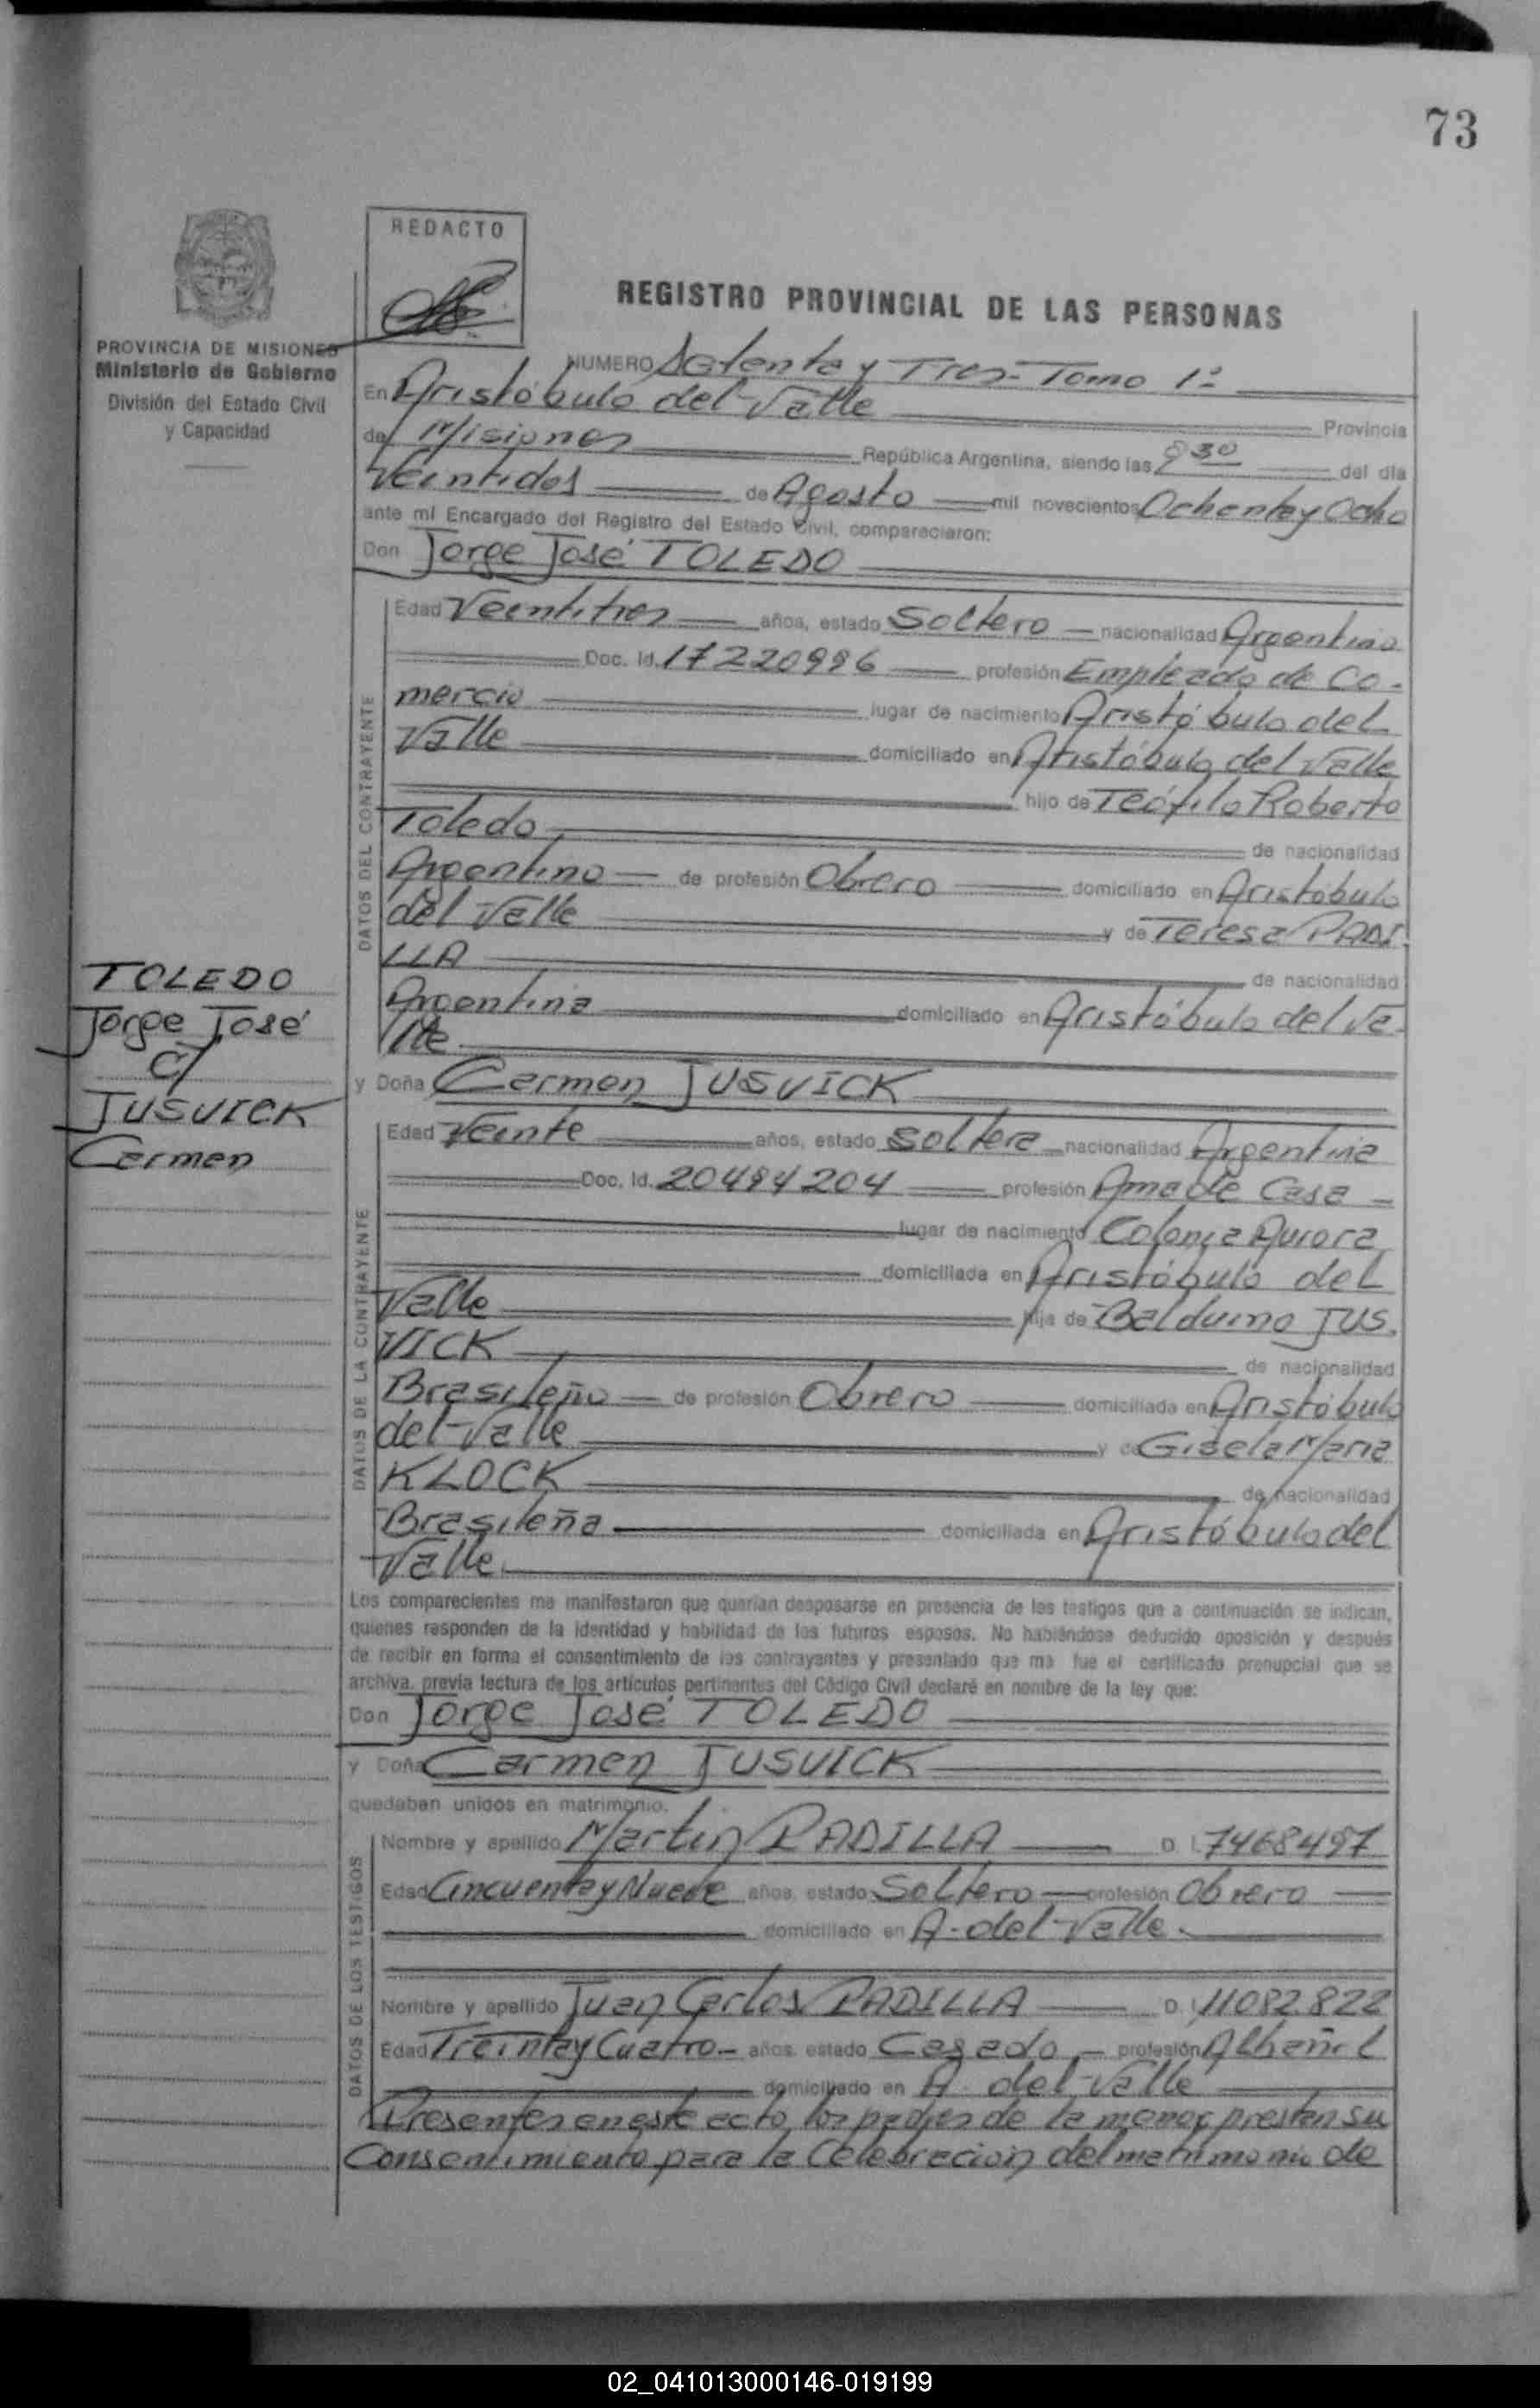 73
REDACTO
REGISTRO PROVINCIAL DE LAS PERSONAS
PROVINCIA DE MISIONES
Ministerio de Gobierno
División del Estado Civil
y Capacidad
NUMERO Setenta y Tres - Tomo 1º
En Aristóbulo del Valle Provincia
de Misiones República Argentina, siendo las 9 30 del día
Veintidos de Agosto mil novecientos Ochenta y Ocho
ante mí Encargado del Registro del Estado Civil, comparecieron:
Don Jorge José TOLEDO
DATOS DEL CONTRAYENTE
Edad Veintitres años, estado Soltero nacionalidad Argentino
Doc. Id. 17220996 profesión Empleado de Co-
mercio lugar de nacimiento Aristóbulo del
Valle domiciliado en Aristóbulo del Valle
hijo de Teófilo Roberto
Toledo de nacionalidad
Argentino de profesión Obrero domiciliado en Aristóbulo
del Valle y de Teresa PADI-
LLA de nacionalidad
Argentina domiciliado en Aristóbulo del Va-
lle
TOLEDO
Jorge José
c/
JUSVICK
Carmen
y Doña Carmen JUSVICK
DATOS DE LA CONTRAYENTE
Edad Veinte años, estado soltera nacionalidad Argentina
Doc. Id. 20494204 profesión Ama de Casa -
lugar de nacimiento Colonia Aurora
domiciliada en Aristóbulo del
Valle hija de Balduino JUS-
VICK de nacionalidad
Brasileño de profesión Obrero domiciliada en Aristóbulo
del Valle y de Gisela Maria
KLOCK de nacionalidad
Brasileña domiciliada en Aristóbulo del
Valle.
Los comparecientes me manifestaron que querían desposarse en presencia de los testigos que a continuación se indican,
quienes responden de la identidad y habilidad de los futuros esposos. No habiéndose deducido oposición y después
de recibir en forma el consentimiento de los contrayentes y presentado que me fue el certificado prenupcial que se
archiva, previa lectura de los artículos pertinentes del Código Civil declaré en nombre de la ley que:
Don Jorge José TOLEDO
y Doña Carmen JUSVICK
quedaban unidos en matrimonio.
DATOS DE LOS TESTIGOS
Nombre y apellido Martin PADILLA D. I. 7468497
Edad Cincuenta y Nueve años, estado Soltero profesión Obrero
domiciliado en A. del Valle.
Nombre y apellido Juan Carlos PADILLA D. I. 11082822
Edad Treinta y Cuatro - años, estado Casado - profesión Albañil
domiciliado en A. del Valle
Presentes en este acto, los padres de la menor prestan su
Consentimiento para la Celebracion del matrimonio de
02_041013000146-019199